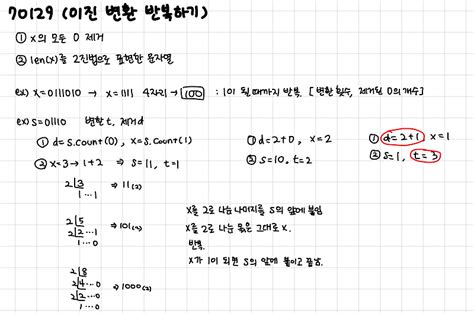 70129 (이진 변환 반복하기)
① x의 모든 0 제거
② len(x)를 2진법으로 표현한 문자열
ex) x=0111010 → x=1111 4자리 → 100 : 1이 될 때까지 반복. [변환 횟수, 제거된 0의 개수]
ex) s=01110 변환 t, 제거 d
① d=s.count(0), x=s.count(1) ① d=2+0, x=2 ① d=2+1 x=1
② x=3→1+2 ⇒ s=11, t=1 ② s=10, t=2 ② s=1, t=3
2|3 ⇒ 11(2)
1…1
x를 2로 나눈 나머지를 s의 앞에 붙임
2|5 ⇒ 101(2)
x를 2로 나눈 몫은 그대로 x.
2|2…1
반복.
1…0
x가 1이 되면 s의 앞에 붙이고 끝냄.
2|8
2|4…0 ⇒ 1000(2)
2|2…0
1…0